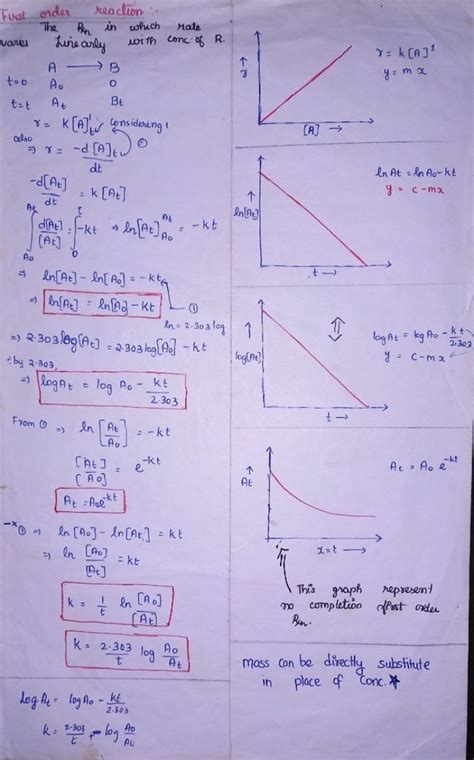 First order reaction :-
The Rxn in which rate
varies linearly with conc. of R.
A ⟶ B
t=0 A₀ 0
t=t At Bt
r = k[A]¹t Considering 1
also
⇒ r = -d[A]t / dt ②
-d[At]/dt = k[At]
∫ d[At]/[At] = ∫ -kt ⇒ ln[At] = -kt
A₀ At 0 t A₀ At
⇒ ln[At] - ln[A₀] = -kt
⇒ ln[At] = ln[A₀] - kt ①
ln = 2.303 log
⇒ 2.303 log[At] = 2.303 log[A₀] - kt
÷ by 2.303,
⇒ log At = log A₀ - kt/2.303
From ① ⇒ ln [At/A₀] = -kt
[At]/[A₀] = e^-kt
At = A₀e^-kt
-×① ⇒ ln[A₀] - ln[At] = kt
⇒ ln [A₀]/[At] = kt
k = 1/t ln [A₀]/[At]
k = 2.303/t log A₀/At
Log At = log A₀ - kt/2.303
k = 2.303/t log A₀/At
r = k[A]¹
y = mx
↑ r
[A] →
ln At = ln A₀ - kt
y = c - mx
↑ ln[At]
t →
⇕
log At = log A₀ - kt/2.303
y = c - mx
↑ log[At]
t →
At = A₀ e^-kt
↑ At
x=t →
This graph represent
no completion of first order
Rxn.
mass can be directly substitute
in place of Conc. ★